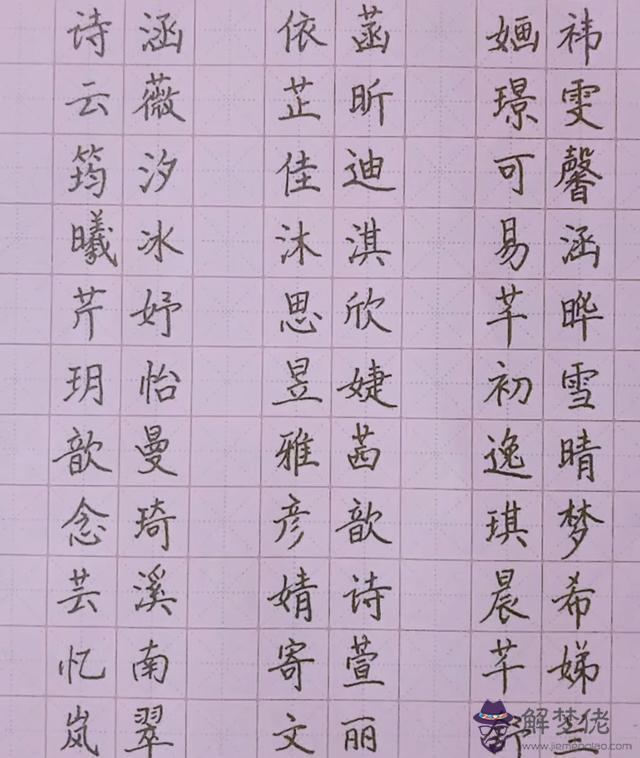 诗涵 依菡 婳祎
云薇 芷昕 璟雯
筠汐 佳迪 可馨
曦冰 沐淇 易涵
芹妤 思欣 芊晔
玥怡 昱婕 初雪
歆曼 雅茜 逸晴
念琦 彦歆 琪梦
芸溪 婧诗 晨希
忆南 寄萱 芊娣
岚翠 文丽
解梦佬
www.jiemenglao.com